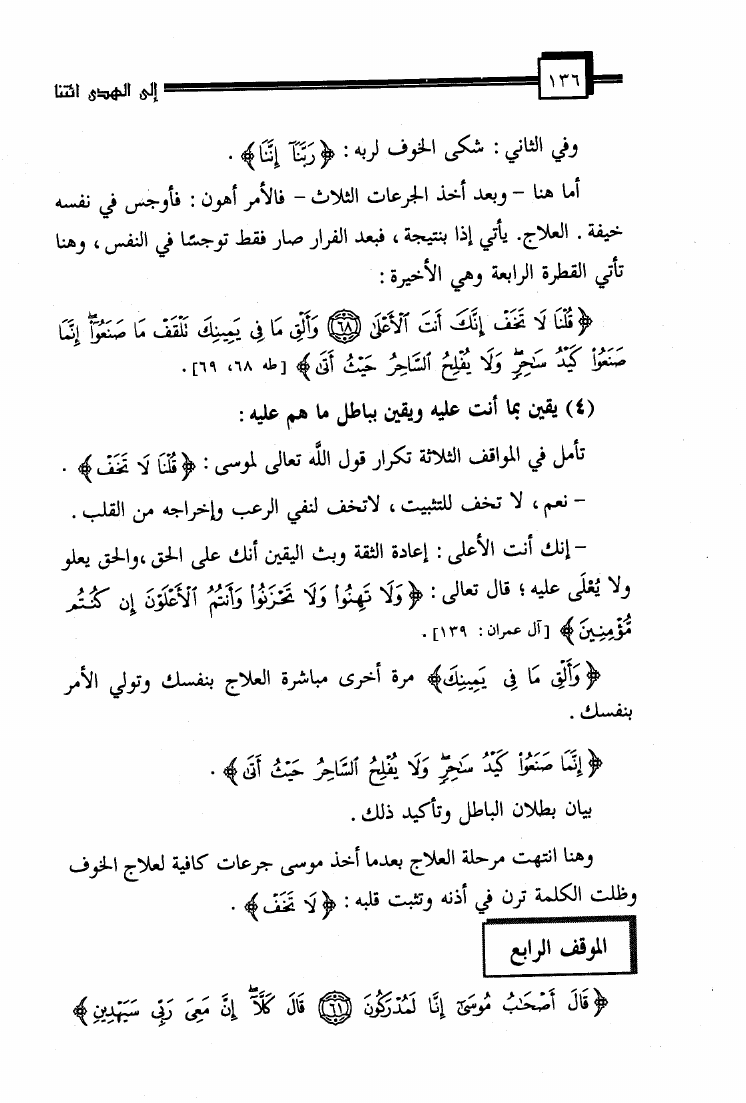 ١٣٦ إلى الهدى ائتنا
وفي الثاني : شكى الخوف لربه : ﴿ رَبَّنَآ إِنَّنَا ﴾ .
أما هنا - وبعد أخذ الجرعات الثلاث - فالأمر أهون : فأوجس في نفسه
خيفة . العلاج. يأتي إذا بنتيجة ، فبعد الفرار صار فقط توجسًا في النفس ، وهنا
تأتي القطرة الرابعة وهي الأخيرة :
﴿ قُلْنَا لَا تَخَفْ إِنَّكَ أَنتَ ٱلْأَعْلَىٰ ﴿٦٨﴾ وَأَلْقِ مَا فِى يَمِينِكَ تَلْقَفْ مَا صَنَعُوٓا۟ ۖ إِنَّمَا
صَنَعُوا۟ كَيْدُ سَـٰحِرٍ ۖ وَلَا يُفْلِحُ ٱلسَّاحِرُ حَيْثُ أَتَىٰ ﴾ [طه ٦٨، ٦٩] .
(٤) يقين بما أنت عليه ويقين بباطل ما هم عليه :
تأمل في المواقف الثلاثة تكرار قول اللَّه تعالى لموسى : ﴿ قُلْنَا لَا تَخَفْ ﴾ .
- نعم ، لا تخف للتثبيت ، لاتخف لنفي الرعب وإخراجه من القلب .
- إنك أنت الأعلى : إعادة الثقة وبث اليقين أنك على الحق ،والحق يعلو
ولا يُعْلَى عليه ؛ قال تعالى : ﴿ وَلَا تَهِنُوا۟ وَلَا تَحْزَنُوا۟ وَأَنتُمُ ٱلْأَعْلَوْنَ إِن كُنتُم
مُّؤْمِنِينَ ﴾ [آل عمران : ١٣٩] .
﴿ وَأَلْقِ مَا فِى يَمِينِكَ ﴾ مرة أخرى مباشرة العلاج بنفسك وتولي الأمر
بنفسك .
﴿ إِنَّمَا صَنَعُوا۟ كَيْدُ سَـٰحِرٍ ۖ وَلَا يُفْلِحُ ٱلسَّاحِرُ حَيْثُ أَتَىٰ ﴾ .
بيان بطلان الباطل وتأكيد ذلك .
وهنا انتهت مرحلة العلاج بعدما أخذ موسى جرعات كافية لعلاج الخوف
وظلت الكلمة ترن في أذنه وتثبت قلبه : ﴿ لَا تَخَفْ ﴾ .
الموقف الرابع
﴿ قَالَ أَصْحَـٰبُ مُوسَىٰٓ إِنَّا لَمُدْرَكُونَ ﴿٦١﴾ قَالَ كَلَّآ ۖ إِنَّ مَعِىَ رَبِّى سَيَهْدِينِ ﴾